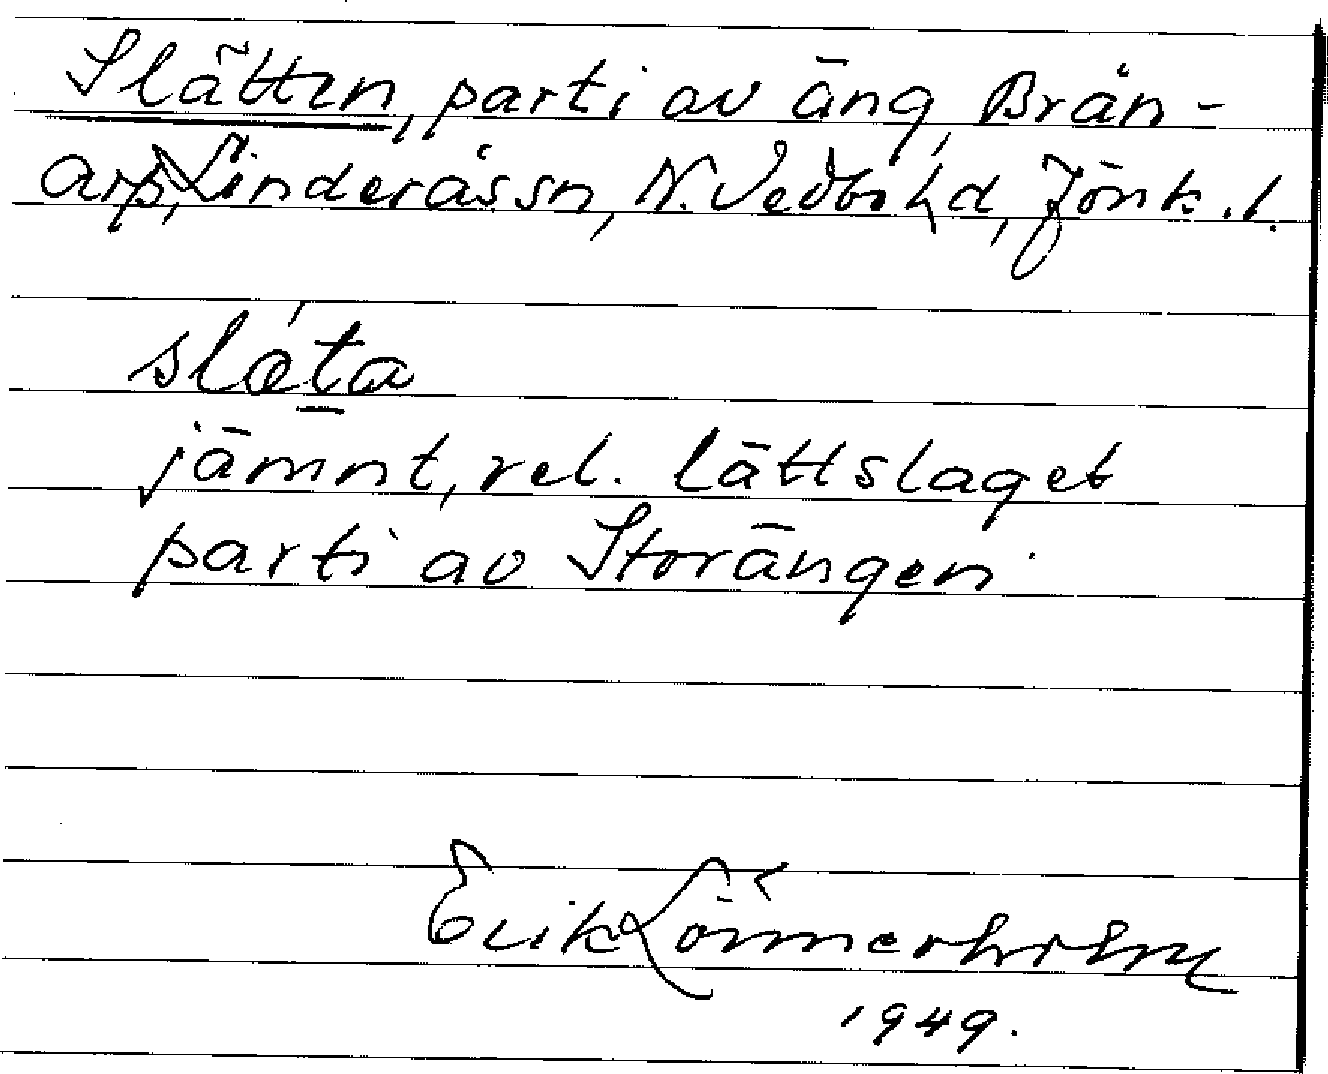 Slätten, parti av äng, Brån-
arp, Linderås sn, N. Vedbo hd, Jönk. l.
slǽta
jämnt, rel. lättslaget
parti av Storängen.
Erik Lönnerholm
1949.